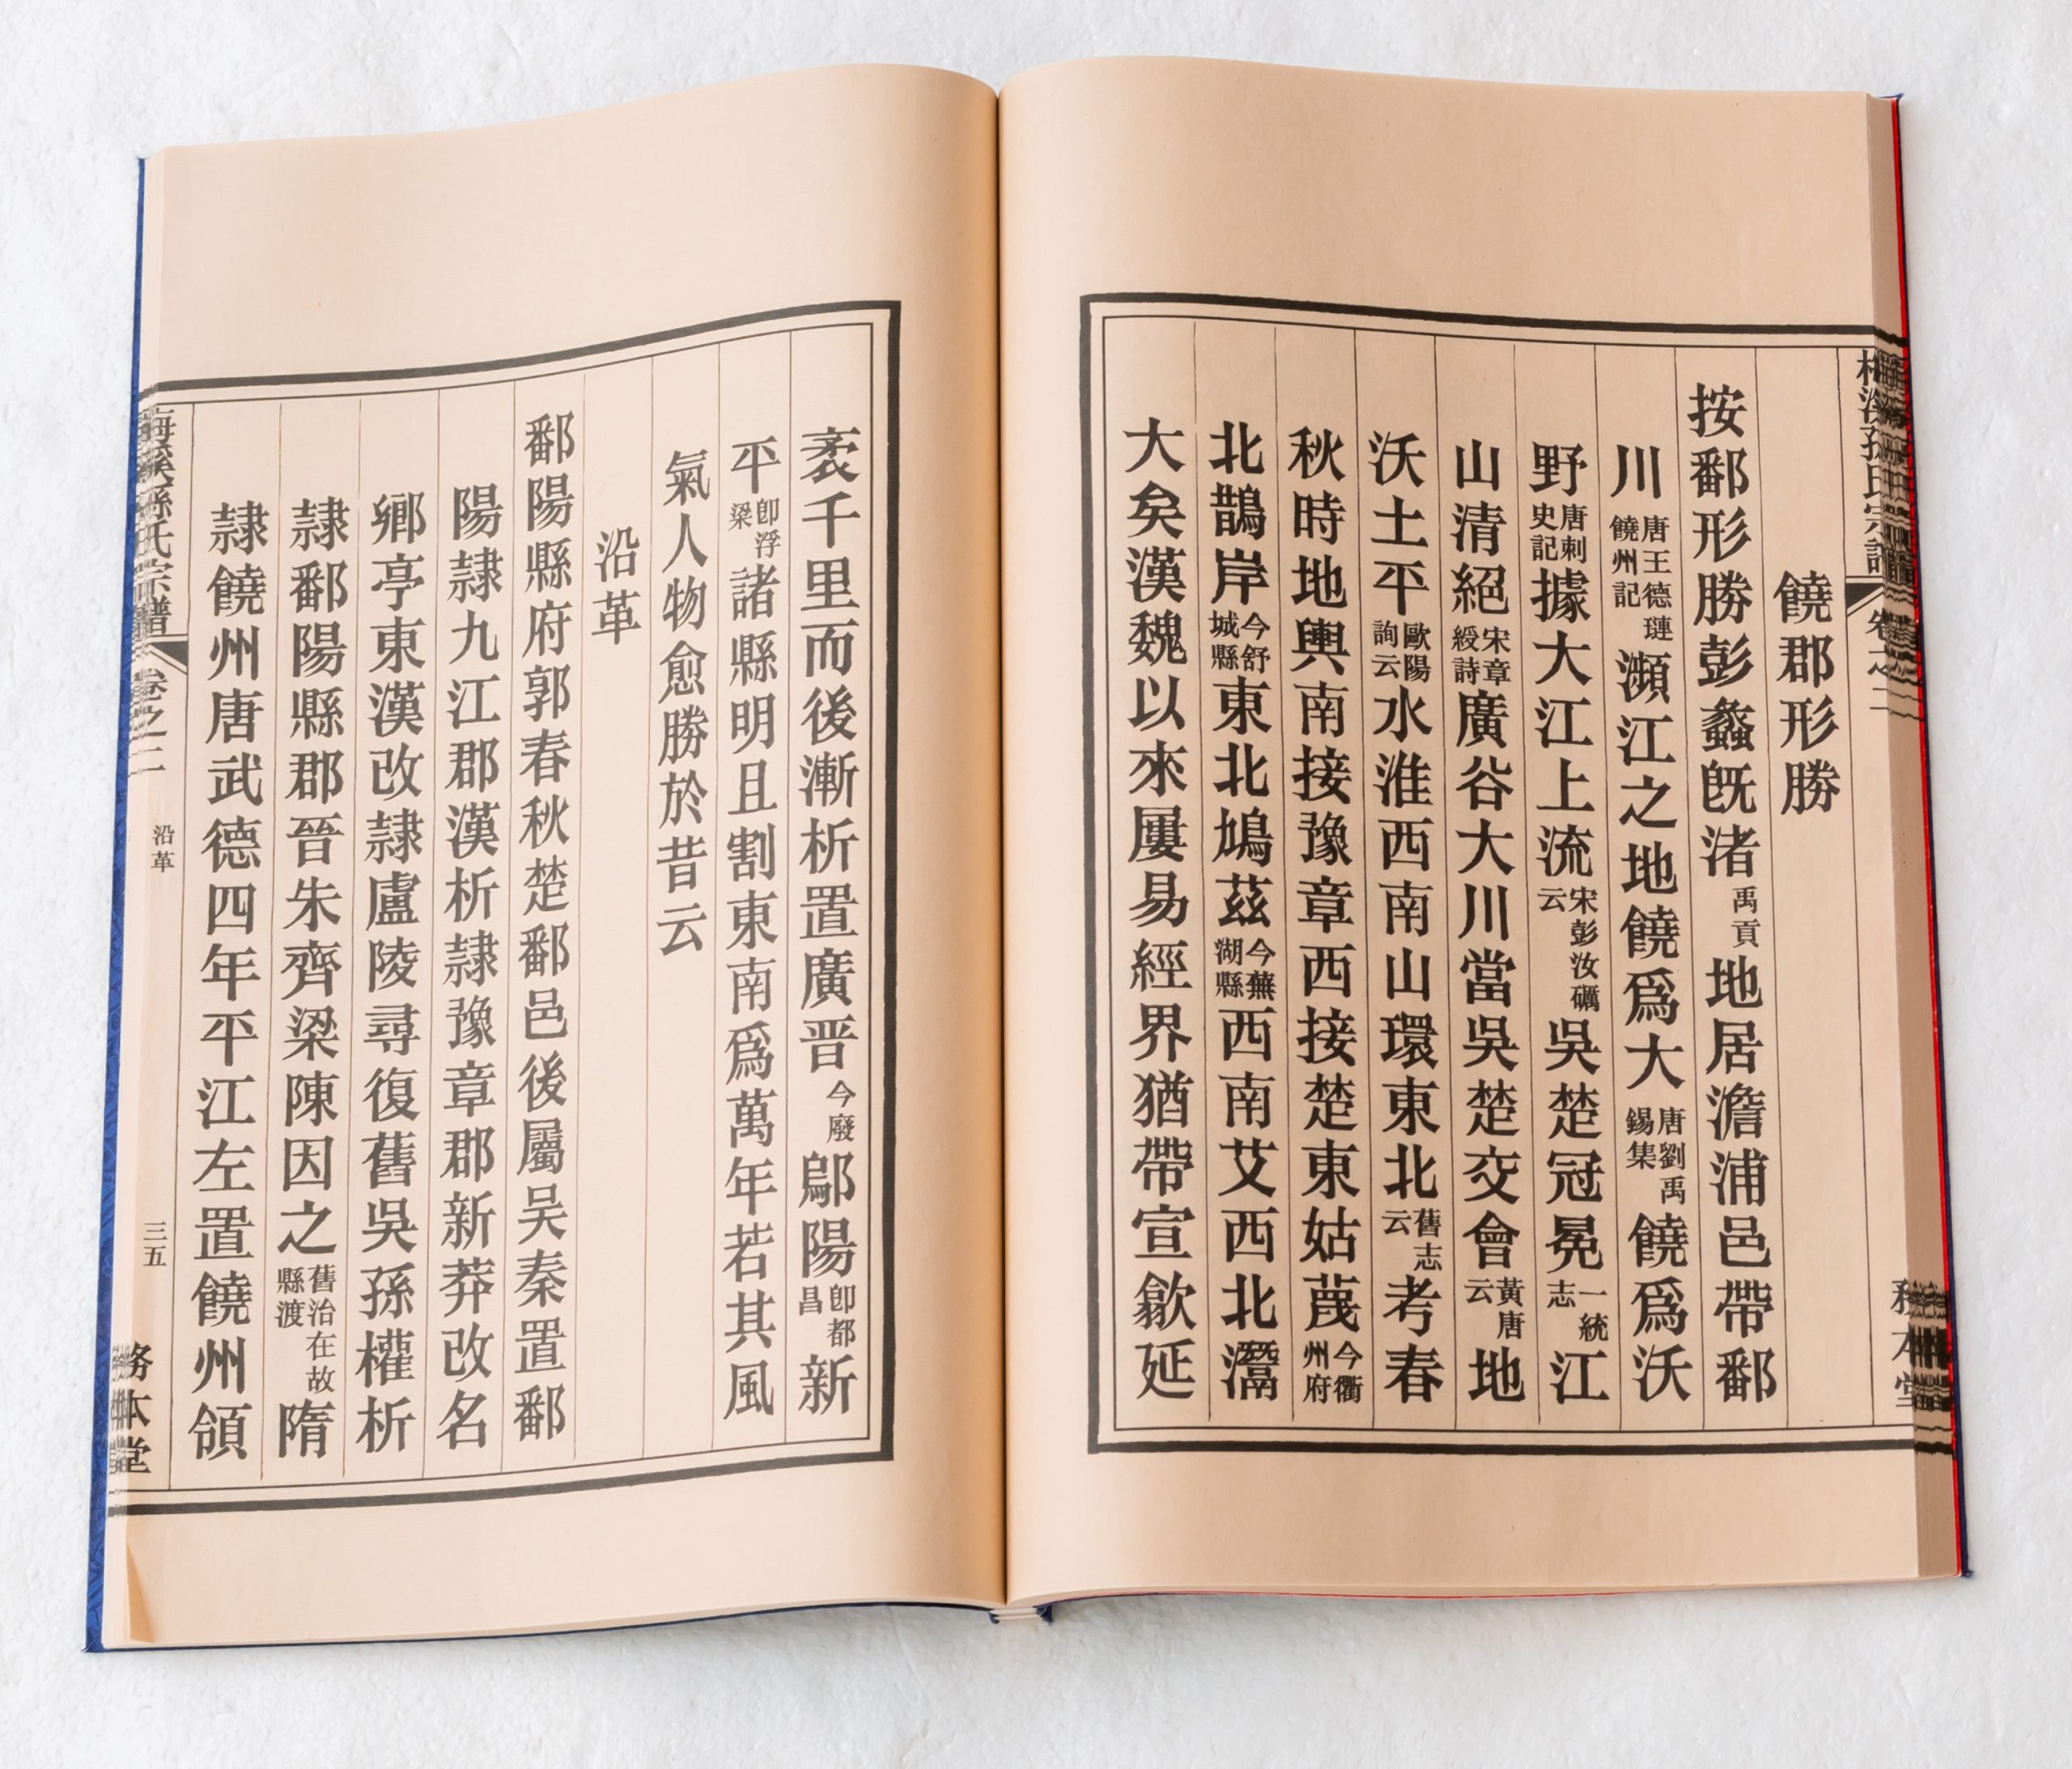 饒郡形勝
按鄱形勝彭蠡旣渚禹貢地居澹浦邑帶鄱
川唐王德璉饒州記瀕江之地饒爲大唐劉禹錫集饒爲沃
野唐刺史記據大江上流宋彭汝礪云吳楚冠冕一統志江
山清絕宋章綬詩廣谷大川當吳楚交會黃唐云地
沃土平歐陽詢云水淮西南山環東北舊志云考春
秋時地輿南接豫章西接楚東姑蔑今衢州府
北鵲岸今舒城縣東北鳩茲今蕪湖縣西南艾西北
大矣漢魏以來屢易經界猶帶宣歙延
袤千里而後漸析置廣晋今廢鄔陽卽都昌新
平卽浮梁諸縣明且割東南爲萬年若其風
氣人物愈勝於昔云
沿革
鄱陽縣府郭春秋楚鄱邑後屬吴秦置鄱
陽隷九江郡漢析隷豫章郡新莽改名
鄉亭東漢改隷廬陵尋復舊吳孫權析
隷鄱陽縣郡晉朱齊梁陳因之舊治在故縣渡隋
隷饒州唐武德四年平江左置饒州領
孫氏宗譜
卷之二
沿革
三五
務本堂